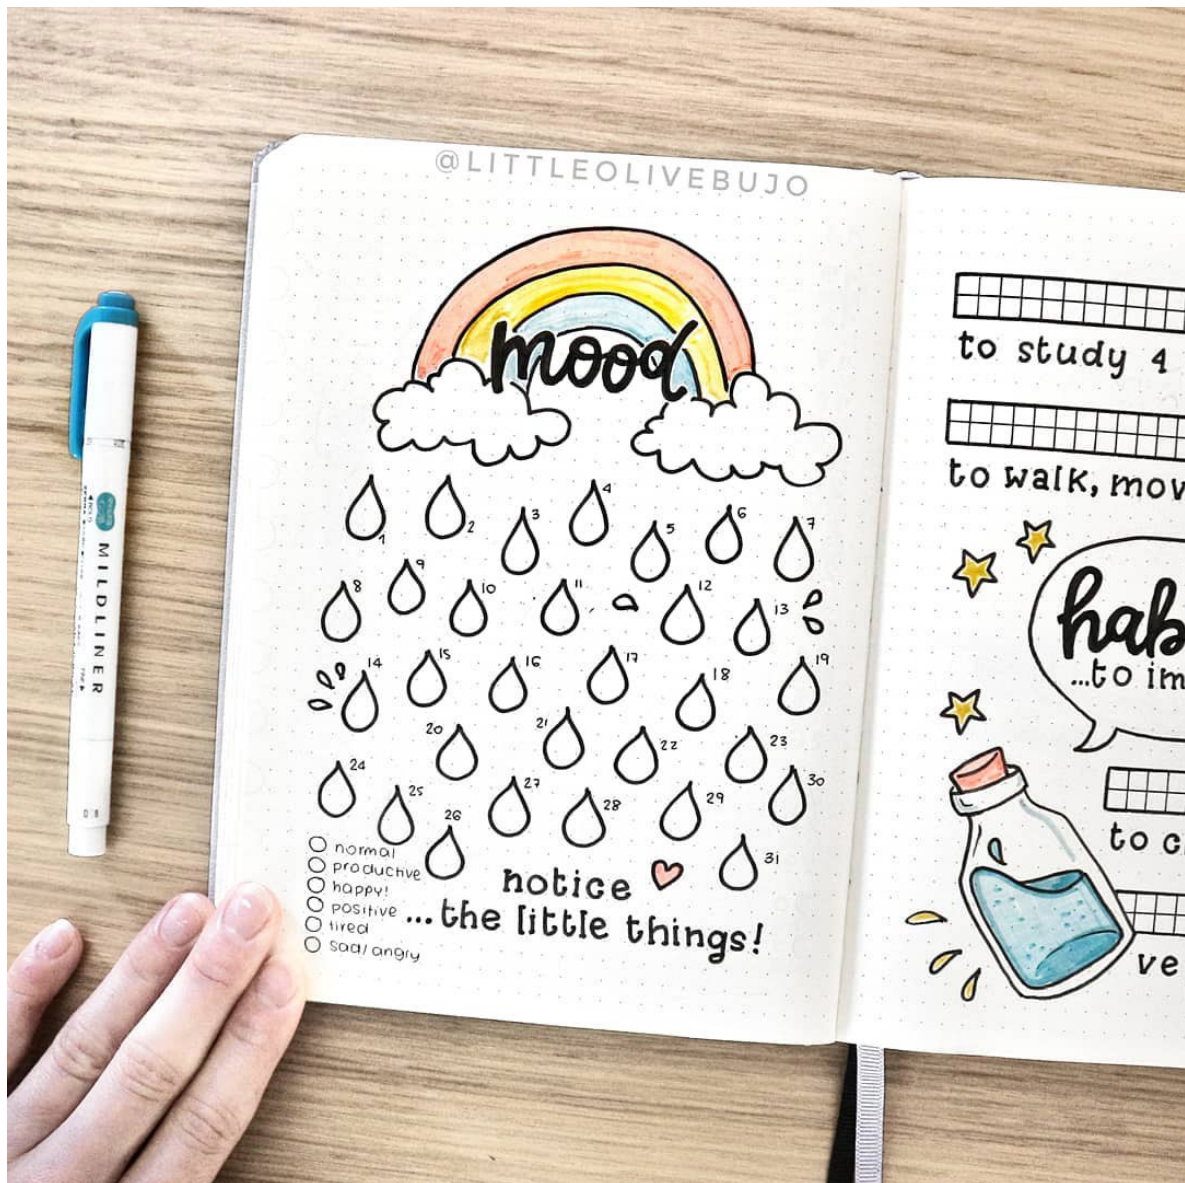 @LITTLEOLIVEBUJO
mood
1
2
3
4
5
6
7
8
9
10
11
12
13
14
15
16
17
18
19
20
21
22
23
24
25
26
27
28
29
30
31
normal
productive
happy!
positive
tired
sad/angry
notice
...the little things!
to study 4
to walk, mov
hab
...to im
to c
ve
MILDLINER